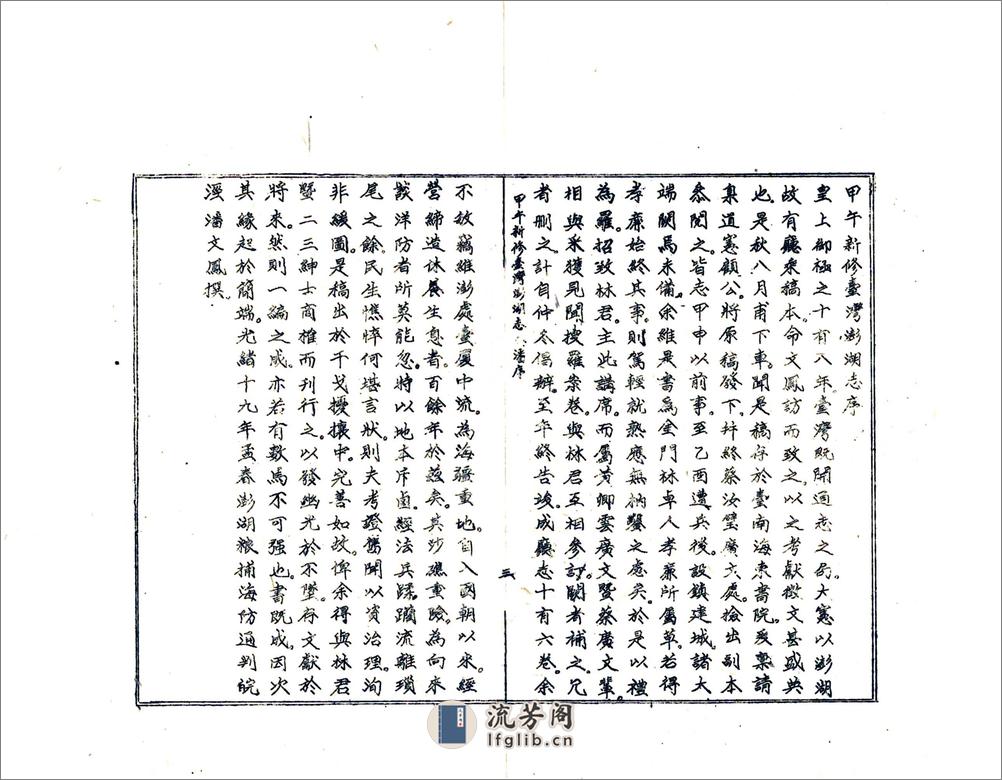 甲午新修臺灣澎湖志序
皇上御極之十有八年臺灣既開通志之局。大憲以澎湖
故有廳乘稿本。命文鳳訪而致之。以之考獻徵文甚盛典
也。是秋八月甫下車。聞是稿存於臺南海東書院。爰稟請
臬道憲顧公。將原稿發下。并終蔡汝璧廣文處。撿出副本
叅閱之。皆志甲申以前事。至乙酉遭兵後。設鎮建城。諸大
端闕焉未備。余維是書為金門林卓人孝廉所屬草。若得
孝廉始終其事。則駕輕就熟應無枘鑿之處矣。於是以禮
為羅。招致林君。主此講席。而屬黃卿雲廣文暨蔡廣文輩。
相與采獲見聞搜羅案卷。與林君互相參訂。闕者補之。冗
者刪之。計自仲冬偪辦。至年終告竣。成廳志十有六卷。余
甲午新修臺灣澎湖志 潘序
三
不敏竊維澎處臺厦中流。為海疆重地。自入國朝以來。經
營締造休養生息者。百餘年於茲矣。其沙礁重險。為向來
談洋防者所莫能忽。特以地本斥鹵。經法兵蹂躪流離瑣
尾之餘。民生憔悴何堪言狀。則夫考證舊聞以資治理。洵
非緩圖。是稿出於干戈擾攘中。完善如故。俾余得與林君
暨二三紳士商榷而刊行之。以發幽光於不墜。存文獻於
將來。然則一編之成。亦若有數焉不可强也。書既成。因次
其緣起於簡端。光緒十九年孟春澎湖粮捕海防通判皖
涇潘文鳳撰。
流芳阁
lfglib.cn